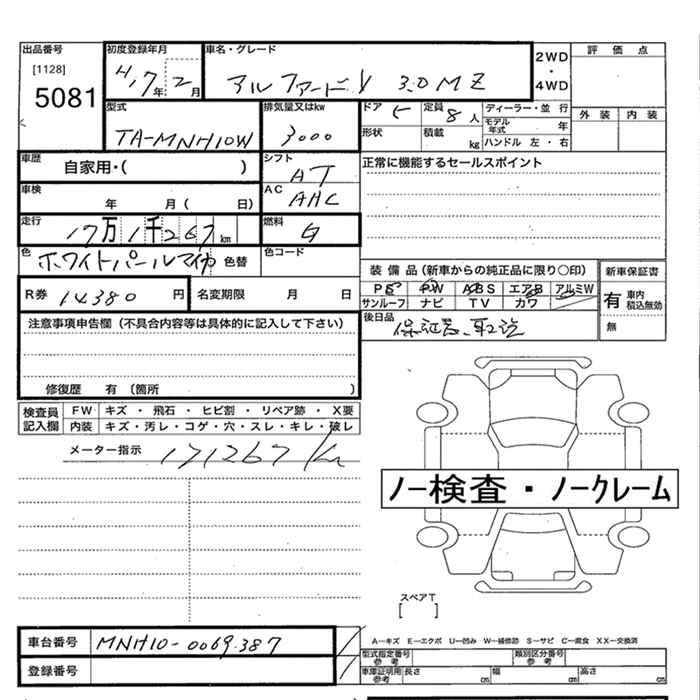 出品番号
[1128]
5081
初度登録年月
H17年2月
車名・グレード
アルファード V 3.0 MZ
2WD
・
4WD
評価点
外装 内装
型式
TA-MNH10W
排気量又はkw
3000
ドア 5
定員 8人
形状
積載 kg
ディーラー・並行
モデル年式 年
ハンドル 左・右
車歴 自家用・( )
シフト
AT
正常に機能するセールスポイント
車検 年 月( 日)
AC
AAC
走行 17万1千267km
燃料 G
色 ホワイトパールマイカ 色替
色コード
装備品(新車からの純正品に限り○印)
PS PW ABS エアB アルミW
サンルーフ ナビ TV カワ
新車保証書
有 車内積込無効
無
R券 14380 円
名変期限 月 日
後日品
保証書、取説
注意事項申告欄(不具合内容等は具体的に記入して下さい)
修復歴 有 〔箇所 〕
検査員記入欄
FW キズ ・ 飛石 ・ ヒビ割 ・ リペア跡 ・ X要
内装 キズ・汚レ・コゲ・穴・スレ・キレ・破レ
メーター指示 171267 Km
ノー検査・ノークレーム
スペアT
[ ]
車台番号 MNH10-0069387
登録番号
A―キズ E―エクボ U―凹み W―補修跡 S―サビ C―腐食 XX―交換済
型式指定番号 参考
類別区分番号 参考
車庫証明用 参考 長さ cm 幅 cm 高さ cm